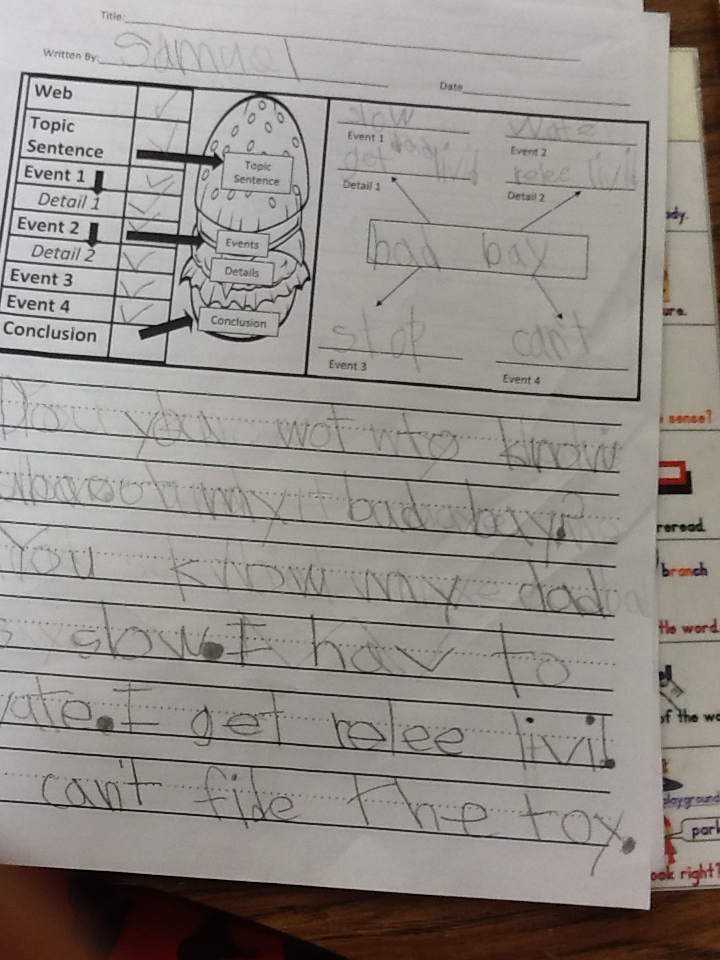 Title:
Written By: Samuel
Date
Web
Topic Sentence
Event 1
Detail 1
Event 2
Detail 2
Event 3
Event 4
Conclusion
Topic Sentence
Events
Details
Conclusion
slow
Event 1
get livid
Detail 1
wate
Event 2
relee livid
Detail 2
bad bay
stop
Event 3
can't
Event 4
Do you wot to know
my bad bay?
You know my dad
s slow. I hav to
wate. I get relee livid.
can't fide the toy.
dy.
ure.
sense?
reread.
branch
the word
of the wo
playground
park
ook right?